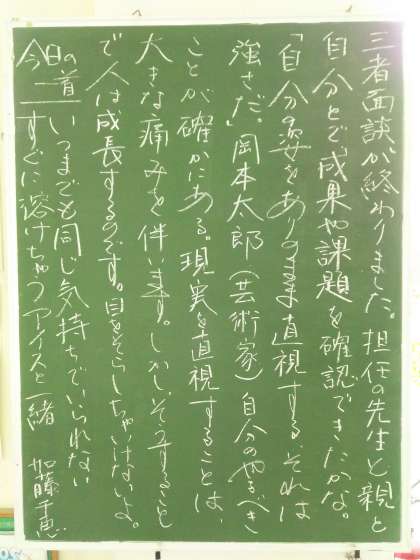 三者面談が終わりました。担任の先生と親と
自分とで、成果や課題を確認できたかな。
「自分の姿をありのまま直視する それは
強さだ」岡本太郎(芸術家)自分のやるべき
ことが確かにある。現実を直視することは、
大きな痛みを伴います。しかし、そうすること
で人は成長するのです。目をそらしちゃいけないよ。
今日の一首 いつまでも同じ気持ちでいられない
すぐに溶けちゃうアイスと一緒 加藤千恵